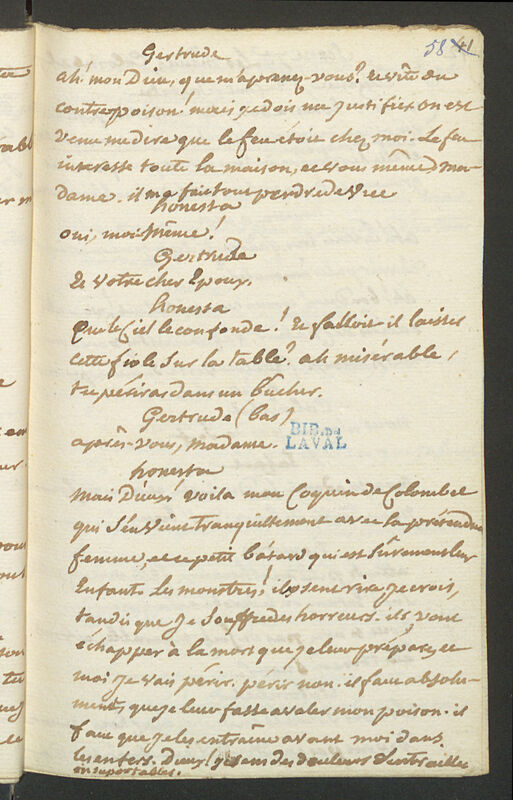 58 41
Gertrude
ah! mon Dieu, que m'aprenez vous? et vîte du
contrepoison! mais je dois me justifier on est
venu me dire que le feu étoit chez moi. Le feu
interesse toute la maison, et vous même Ma-
dame. il m'a fait tout perdre de vue
honesta
oui, moi même!
Gertrude
et votre cher Epoux.
honesta
que le Ciel le confonde! et falloit il laisser
cette fiole sur la table? ah misérable,
tu périras dans un bucher.
Gertrude (bas)
après-vous, Madame.
BIB. DE
LAVAL
honesta
Mais Dieux! voila mon Coquin de Colombel
qui s'en vient tranquillement avec la prétendue
femme, et ce petit bâtard qui est sûrement leur
Enfant. Les monstres! ils osent rire je crois,
tandis que je souffre des horreurs. ils vont
échapper à la mort que je leur prépare, et
moi je vais périr. périr non. il faut absolu-
ment, que je leur fasse avaler mon poison. il
faut que je les entraîne avant moi dans
les enfers. Dieux! je sens des douleurs d'entrailles
insuportables.